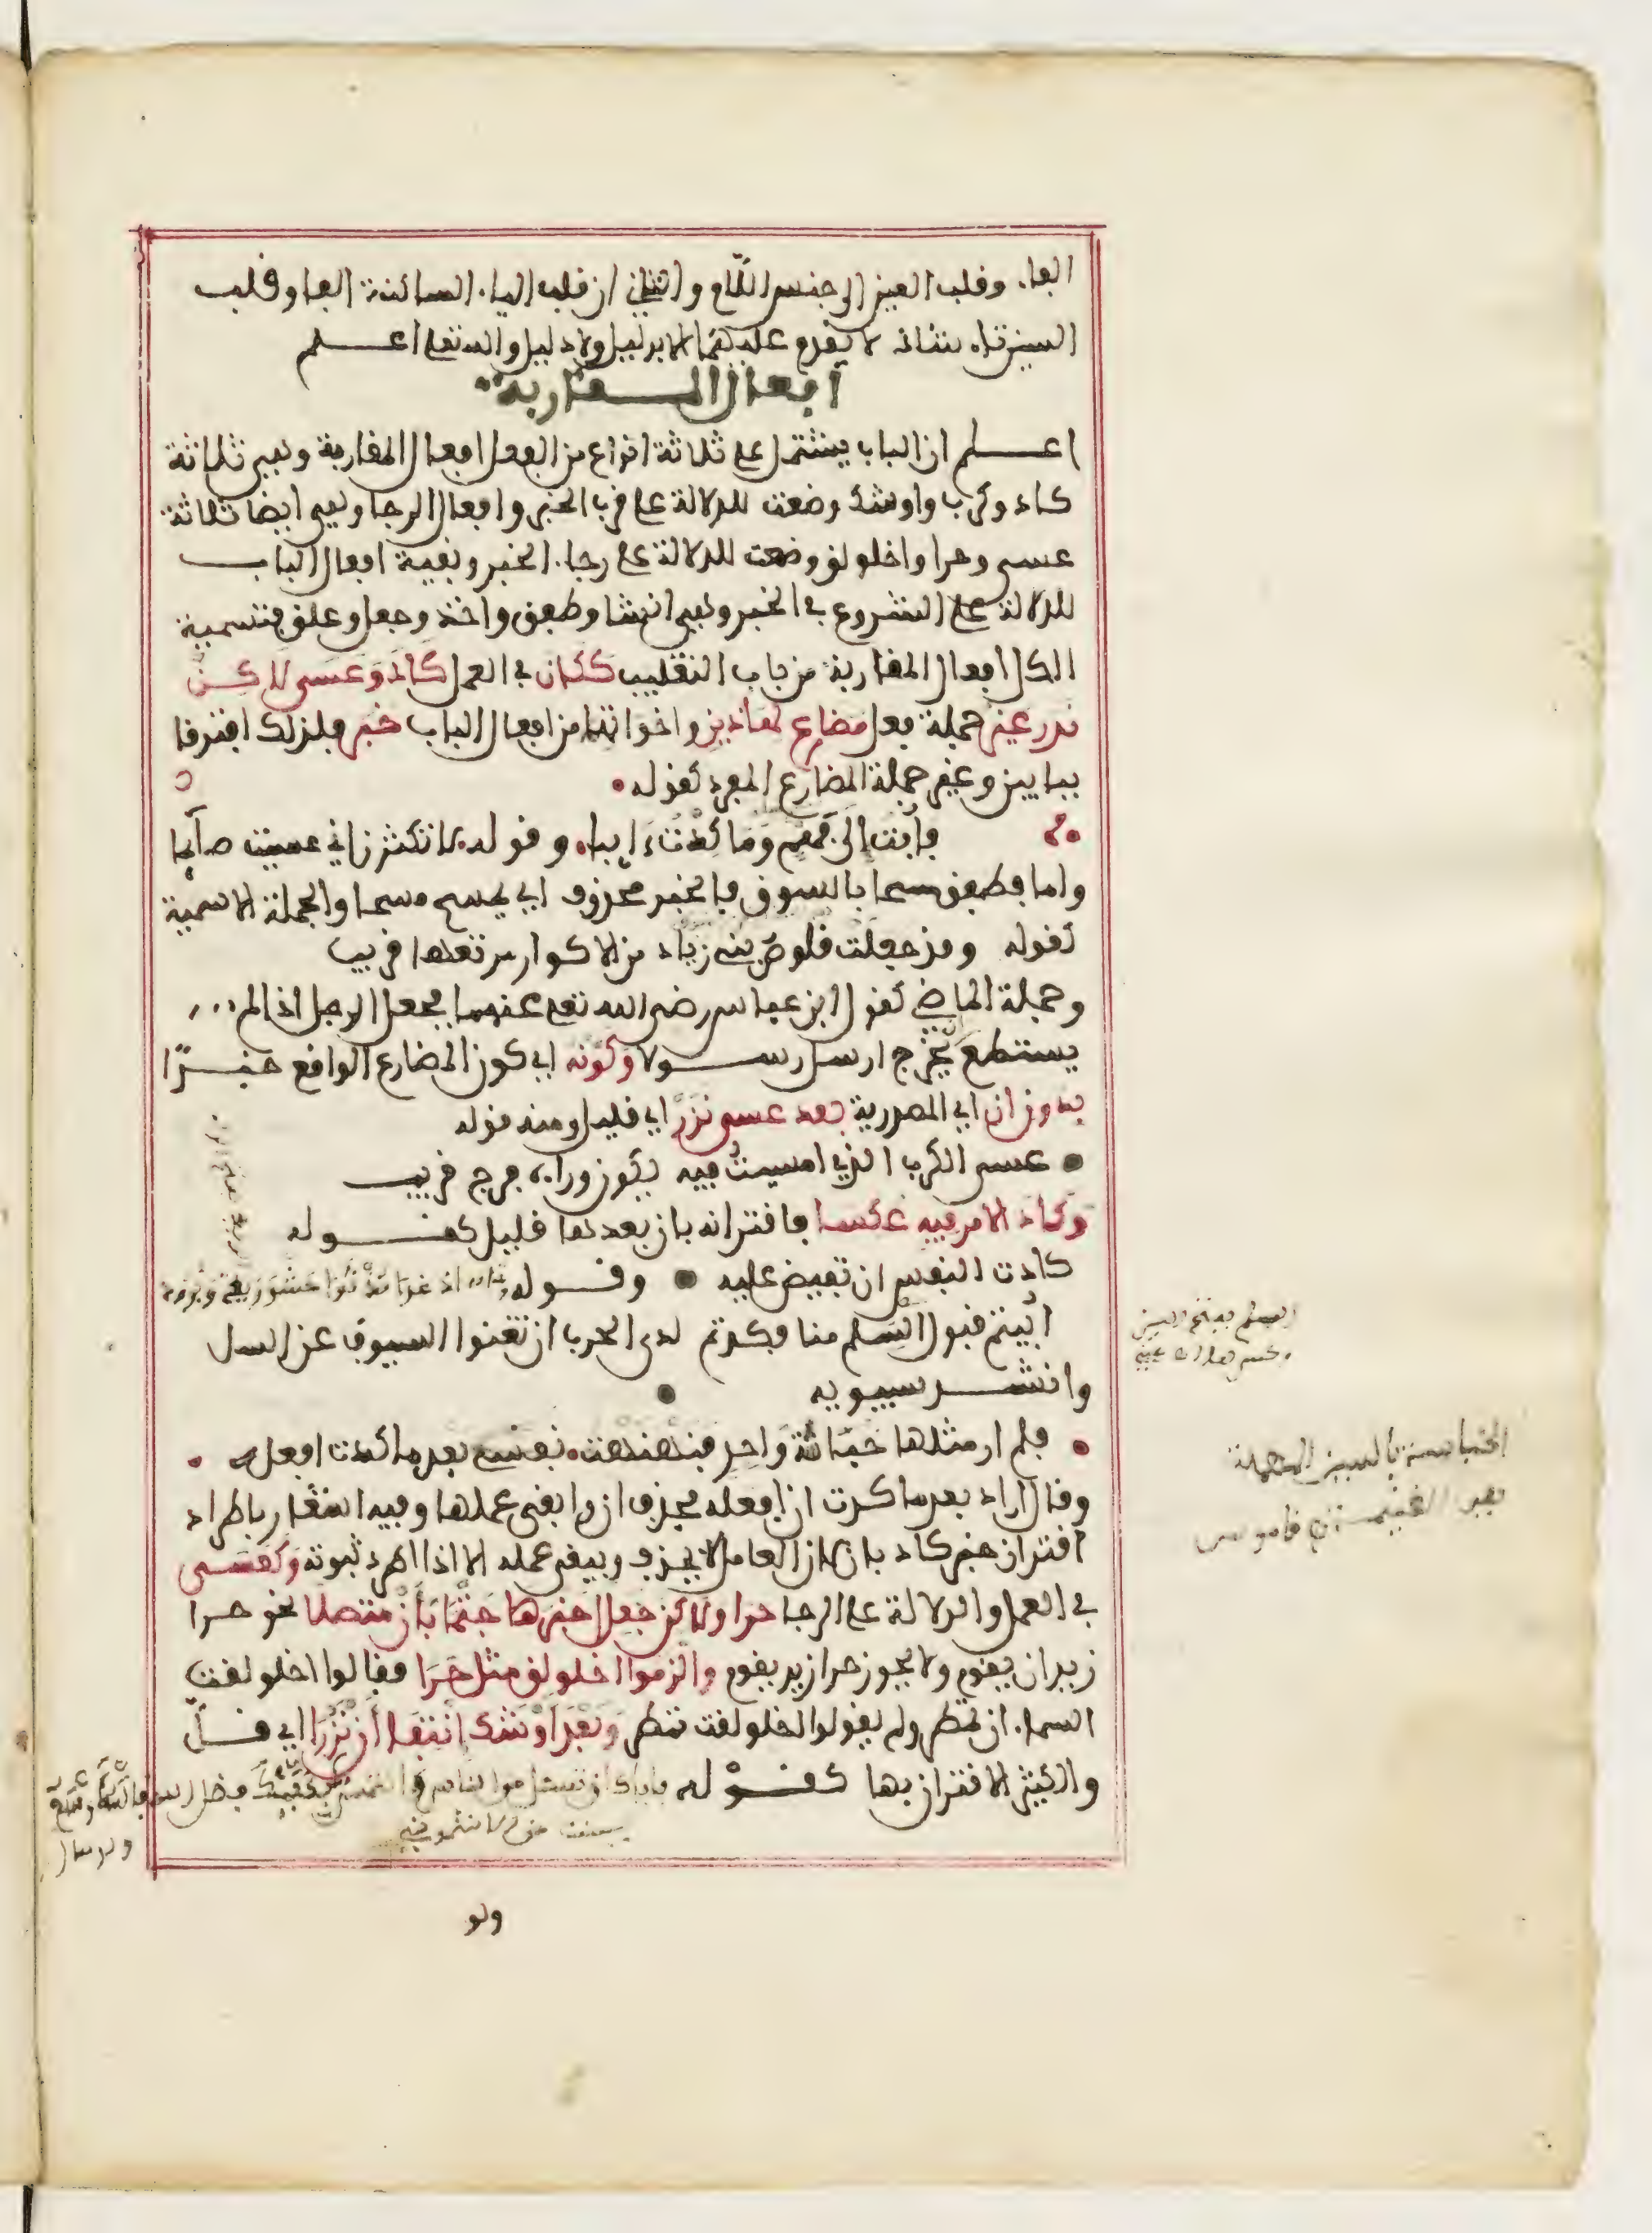 الفاء وقلب العين الى جنس اللام والثاني ان قلب الياء الساكنة الفا وقلب
السين تاء شاذان لا يقدم عليهما الا بدليل ولا دليل والله تعلى اعلم
افعال المقاربة
اعلم ان الباب يشتمل على ثلاثة انواع من الفعل افعال المقاربة وهي ثلاثة
كاد وكرب واوشك وضعت للدلالة على قرب الخبر وافعال الرجا وهي ايضا ثلاثة
عسى وحرا واخلولق وضعت للدلالة على رجاء الخبر وبقية افعال الباب
للدلالة على الشروع في الخبر وهي انشا وطفق واخذ وجعل وعلق فتسمية
الكل افعال المقاربة من باب التغليب ككان في العمل كَادَ وَعَسَى لاكن
ندر غير جملة فعل مضارع لهاذين واخواتهما من افعال الباب خبر فلذلك افترقا
ببابين وغير جملة المضارع المفرد كقوله
فأبت الى فهم وَمَا كدْتُ ءَايبا وقوله لا تكثرن اني عسيت صائما
واما فطفق مسحا بالسوق فالخبر محذوف اي يمسح مسحا والجملة الاسمية
كقوله وقد جعلت قلوص بني زياد من الاكوار مرتعها قريب
وجملة الماضي كقول ابن عباس رضي الله تعلى عنهما فجعل الرجل اذا لم
يستطع يخرج ارسل رسولا وكونه اي كون المضارع الواقع خبرًا
بدون ان اي المصدرية بعد عسى نزرٌ اي قليل ومنه قوله
عسى الكرب الذي امسيتُ فيه يكون وراءه فرج قريب
وَكاد الامر فيه عكسا فاقترانه بان بعدها قليل كقوله
كادت النفس ان تفيض عليه وقوله
ابيتم قبول السلم منا فكدتم لدى الحرب ان تغنوا السيوف عن السل
وانشد سيبويه
فلم ار مثلها خباسة وَاحِدٍ فنهنهت نفسي بعد ما كدت افعله
وقال اراد بعد ما كدت ان افعله فحذف ان وابقى عملها وفيه اشعار باطراد
اقتران خبر كاد بان لان العامل لا يحذف ويبقى عمله الا اذا اطرد ثبوته وَكعَسَى
في العمل والدلالة على الرجا حرا ولاكن جعل خبرها حَتْمًا بأَنْ متصلا نحو حرا
زيد ان يقوم ولا يجوز حرا زيد يقوم والزموا اخلولق مثل حَرَا فقالوا اخلولقت
السماء ان تمطر ولم يقولوا اخلولقت تمطر وَبَعْدَ اَوْشَكَ انْتِفَا أَنْ نَزُرَا اي قلّ
والكثير الاقتران بها كقوله
ولو
السلم بفتح السين
وكسرها
الخباسة بالسين المهملة
هي الغنيمة قاموس